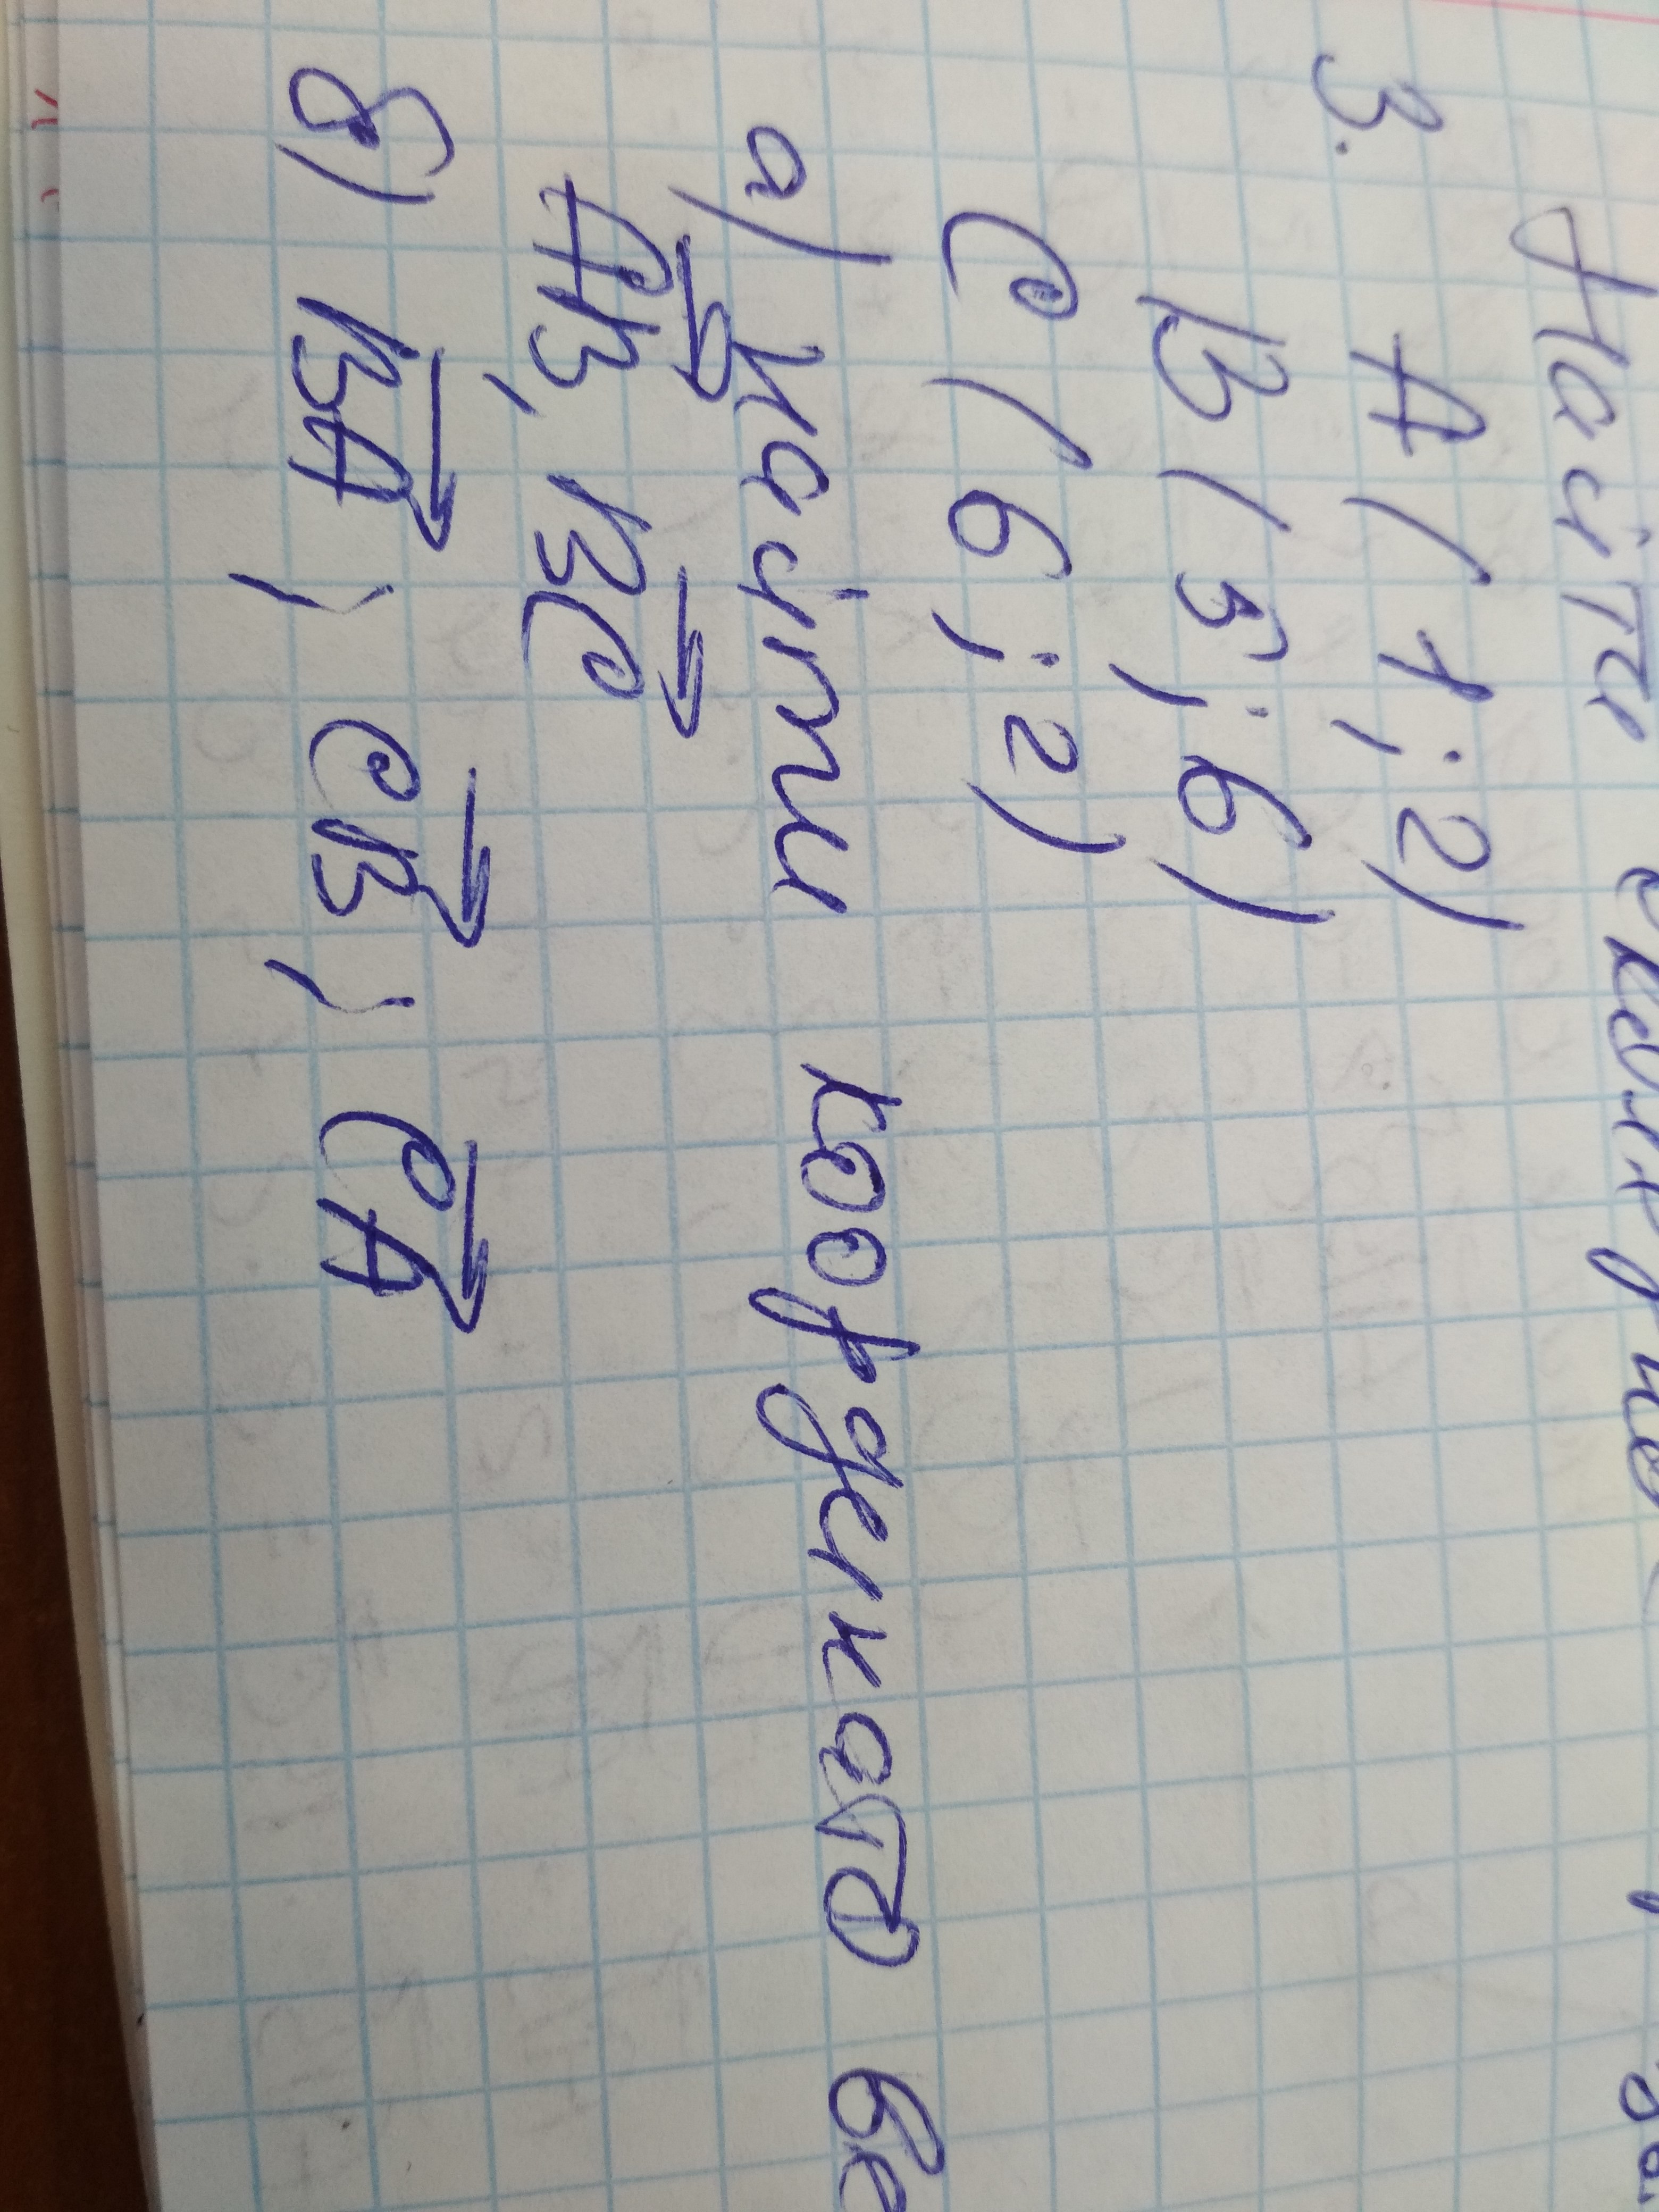 Найти
3. A(1; 2)
B(5; 6)
C(6; 2)
а) Найти координато ве
AB, BC
б) BA; CB; CA